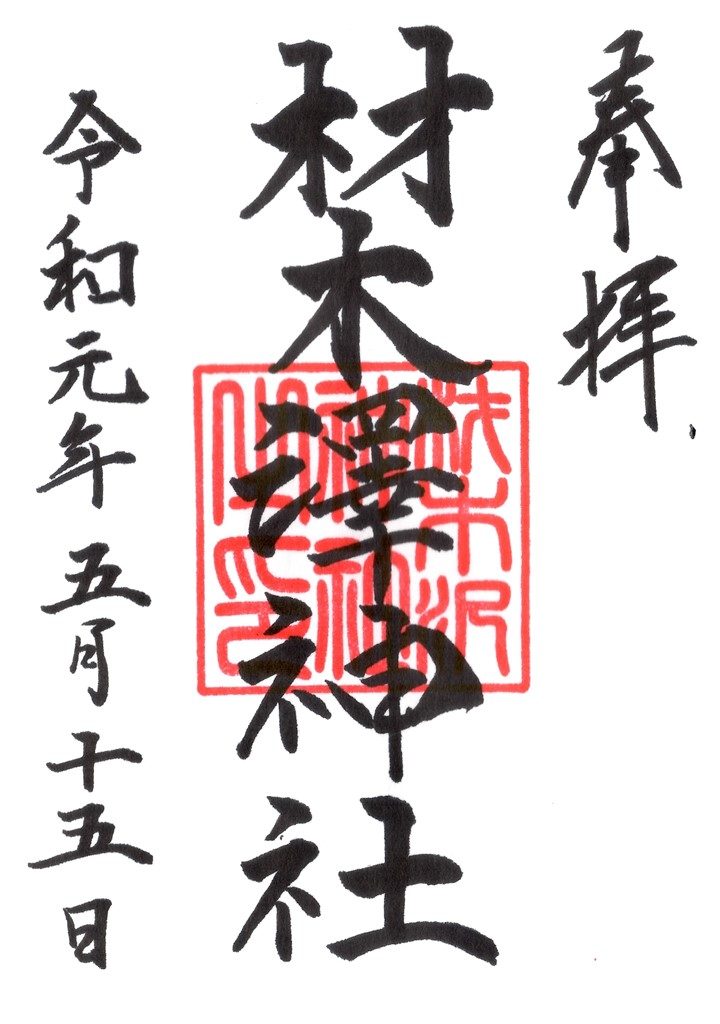 奉拝
材木澤神社
令和元年五月十五日